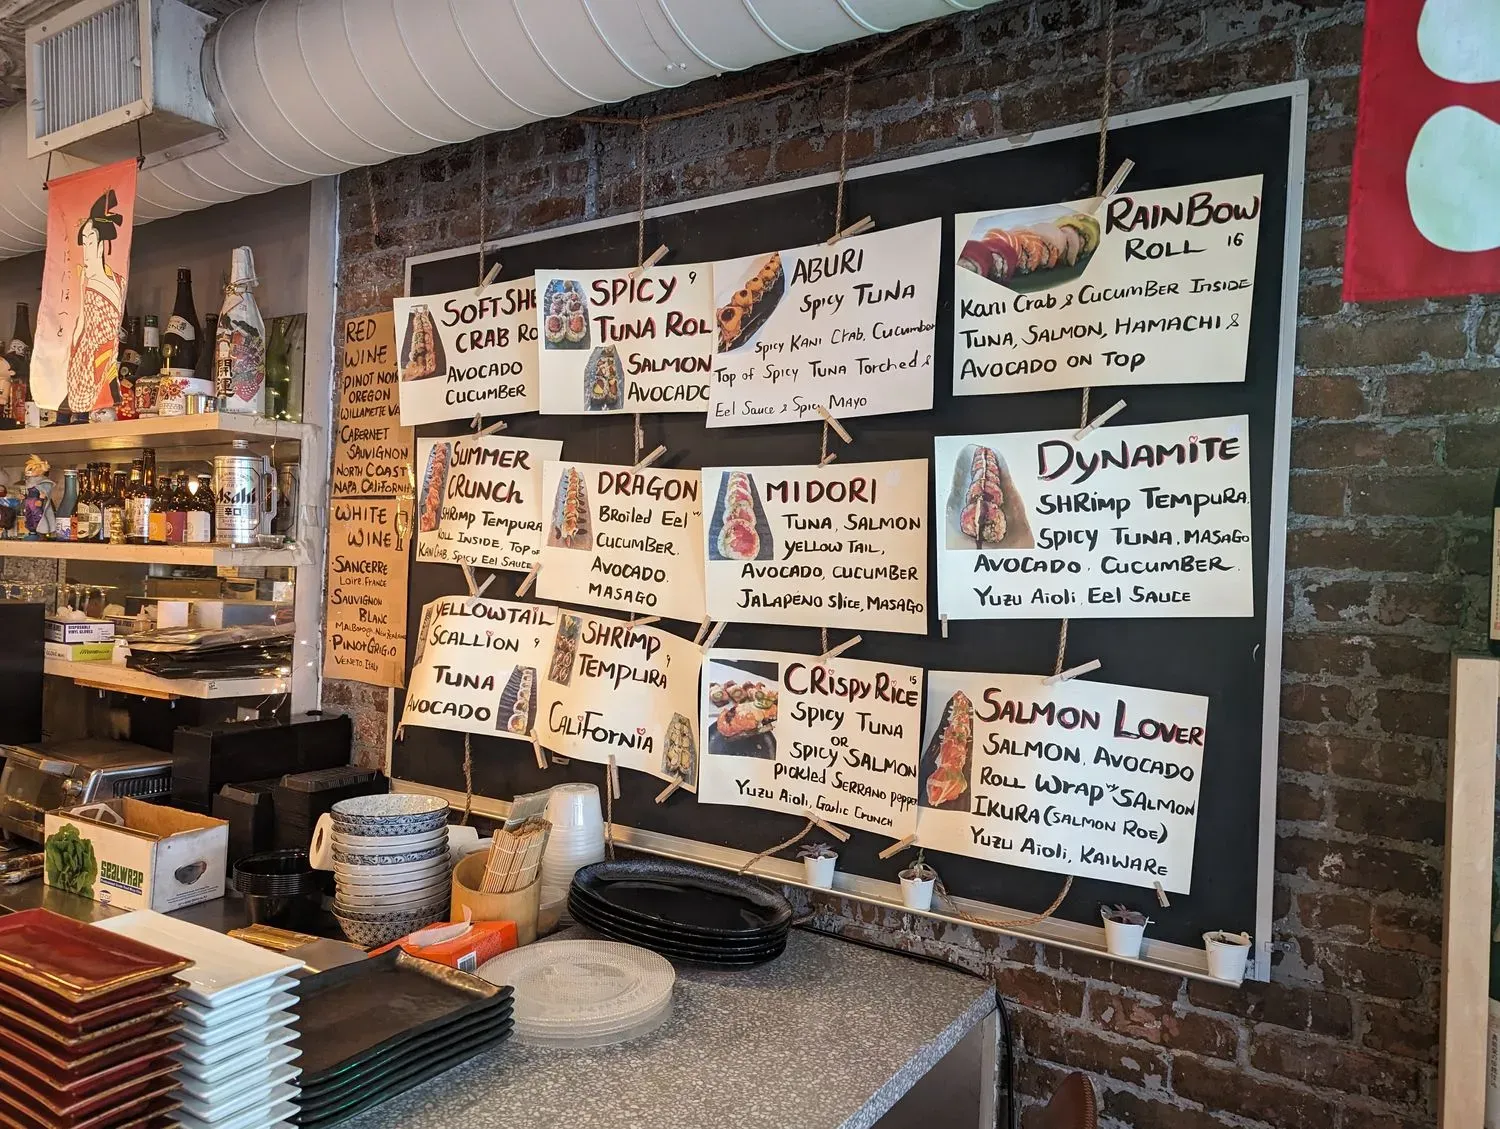 RED
WINE
PINOT NOIR
OREGON
WILLAMETTE VA
CABERNET
SAUVIGNON
NORTH COAST
NAPA, CALIFORNIA
WHITE
WINE
SANCERRE
LOIRE, FRANCE
SAUVIGNON
BLANC
MALBOROUGH NEW ZEALAND
PINOT GRIGIO
VENETO, ITALY
SOFT SHE
CRAB RO
AVOCADO
CUCUMBER
SPICY 9
TUNA ROL
SALMON
AVOCADO
ABURI
SPICY TUNA
SPICY KANI CRAB, CUCUMBER
TOP OF SPICY TUNA TORCHED &
EEL SAUCE & SPICY MAYO
RAINBOW
ROLL 16
KANI CRAB & CUCUMBER INSIDE
TUNA, SALMON, HAMACHI &
AVOCADO ON TOP
SUMMER
CRUNCH
SHRIMP TEMPURA
ROLL INSIDE, TOP OF
KANI CRAB, SPICY EEL SAUCE
DRAGON
BROILED EEL
CUCUMBER.
AVOCADO.
MASAGO
MIDORI
TUNA, SALMON
YELLOW TAIL,
AVOCADO, CUCUMBER
JALAPENO SLICE, MASAGO
DYNAMITE
SHRIMP TEMPURA,
SPICY TUNA, MASAGO
AVOCADO, CUCUMBER,
YUZU AIOLI, EEL SAUCE
YELLOWTAIL
SCALLION 9
TUNA
AVOCADO
SHRIMP 9
TEMPURA
CALIFORNIA
CRISPY RICE 15
SPICY TUNA
OR
SPICY SALMON
PICKLED SERRANO PEPPER
YUZU AIOLI, GARLIC CRUNCH
SALMON LOVER
SALMON, AVOCADO
ROLL WRAP W/ SALMON
IKURA (SALMON ROE)
YUZU AIOLI, KAIWARE
Asahi
辛口
開運
SEALWRAP